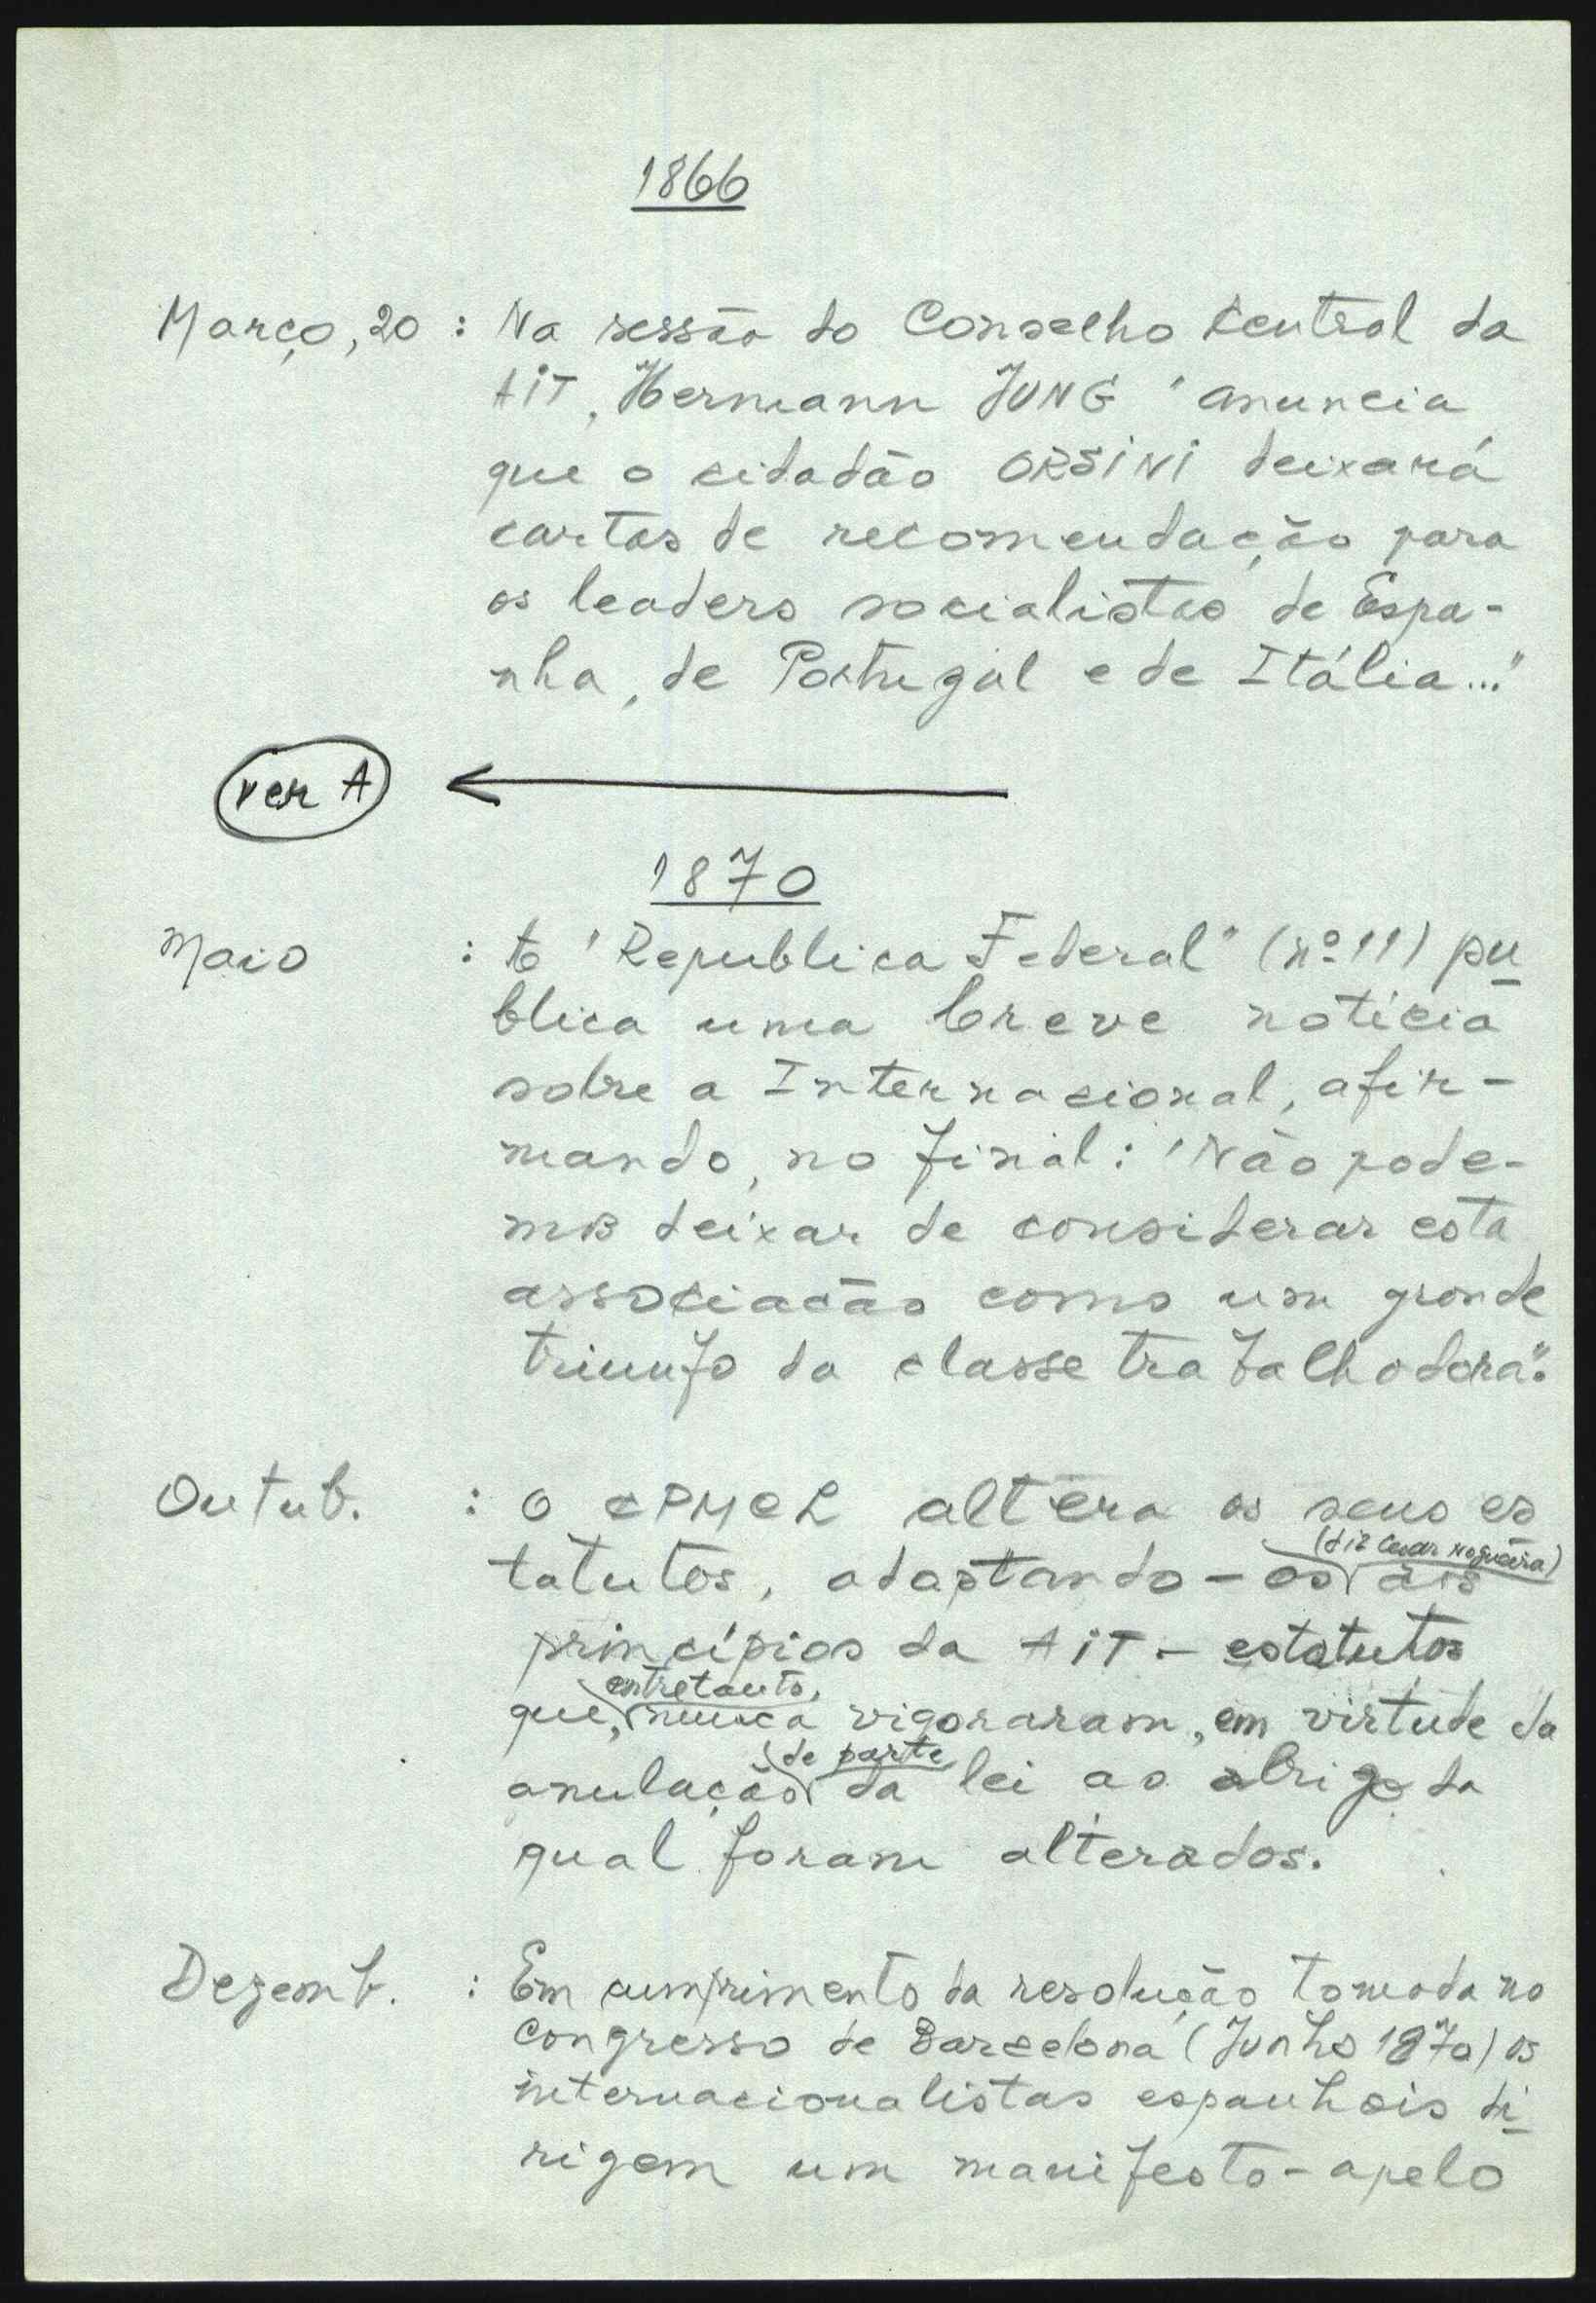 1866
Março, 20 : Na sessão do Conselho Central da
AIT, Hermann JUNG "anuncia
que o cidadão ORSINI deixará
cartas de recomendação para
os leaders socialistas de Espa-
nha, de Portugal e de Itália..."
ver A
1870
Maio : A "Republica Federal" (nº 11) pu
blica uma breve notícia
sobre a Internacional, afir-
mando, no final: "Não pode-
mos deixar de considerar esta
associação como um grande
triunfo da classe trabalhadora".
Outub. : O CPMCL altera os seus es
tatutos, adaptando-os (diz Cesar Nogueira) aos
princípios da AIT - estatutos
que, entretanto, nunca vigoraram, em virtude da
anulação de parte da lei ao abrigo da
qual foram alterados.
Dezemb. : Em cumprimento da resolução tomada no
congresso de Barcelona (Junho 1870) os
internacionalistas espanhois di
rigem um manifesto-apelo